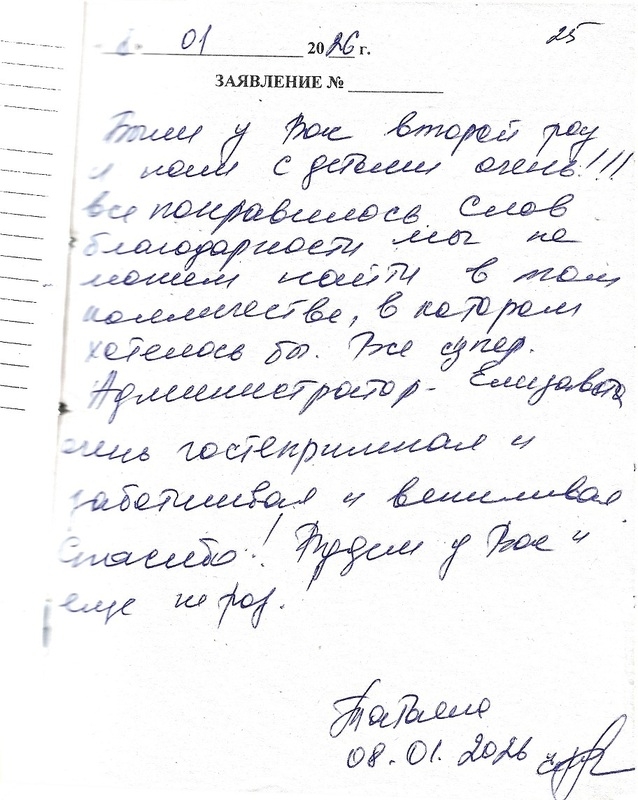 01 2026 г.
25
ЗАЯВЛЕНИЕ №
Были у Вас второй раз
и нам с детьми очень!!!
все понравилось Слов
благодарности мы не
можем найти в том
колличестве, в котором
хотелось бы. Все супер.
Администратор - Елизавета
очень гостеприимная и
заботливая и вежливая
Спасибо! Будем у Вас и
еще не раз.
Татьяна
08.01.2026